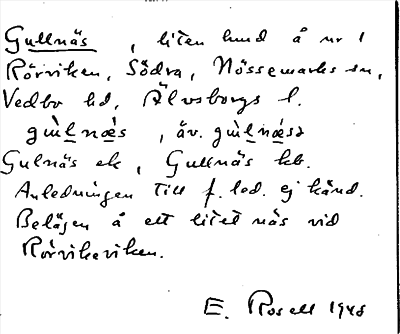 Gullnäs, liten lund å nr 1
Rörviken, Södra, Nössemarks sn,
Vedbo hd, Älvsborgs l.
gùl næ̀s, äv. gùl næ̀sa
Gulnäs ek, Gullnäs kb.
Anledningen till f. led. ej känd.
Belägen å ett litet näs vid
Rörvikeviken.
E. Rosell 1948